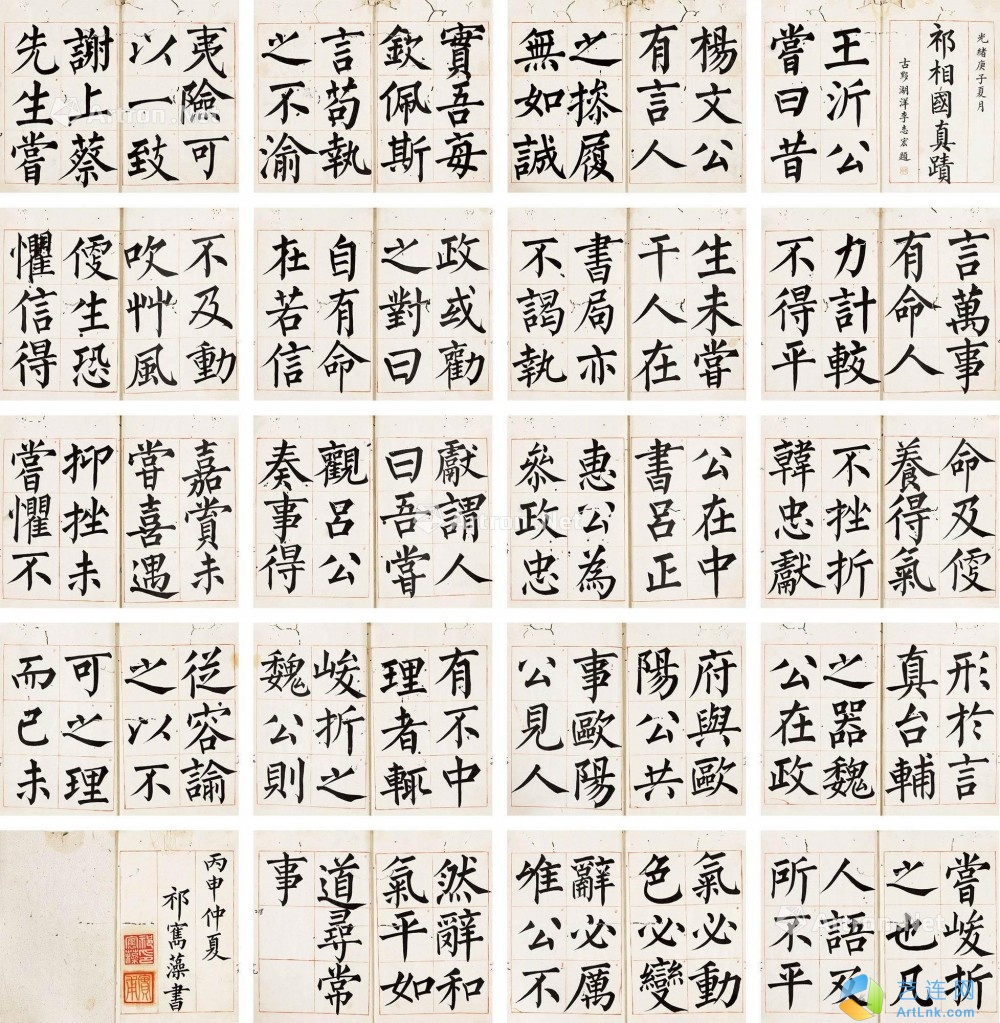 光緒庚子夏月
祁相國真蹟
古黟湖洋李志宏題
王沂公
嘗曰昔
楊文公
有言人
之操履
無如誠
實吾每
欽佩斯
言苟執
之不渝
夷險可
以一致
謝上蔡
先生嘗
言萬事
有命人
力計較
不得平
生未嘗
干人在
書局亦
不謁執
政或勸
之對曰
自有命
在若信
不及動
吹艸風
便生恐
懼信得
命及便
養得氣
不挫折
韓忠獻
公在中
書呂正
惠公為
叅政忠
獻謂人
曰吾嘗
觀呂公
奏事得
嘉賞未
嘗喜遇
抑挫未
嘗懼不
形於言
真台輔
之器魏
公在政
府與歐
陽公共
事歐陽
公見人
有不中
理者輒
峻折之
魏公則
從容諭
之以不
可之理
而已未
嘗峻折
之也凡
人語及
所不平
氣必動
色必變
辭必厲
惟公不
然辭和
氣平如
道尋常
事
丙申仲夏
祁寯藻書
Artron.Net
艺连网
ArtLnk.com